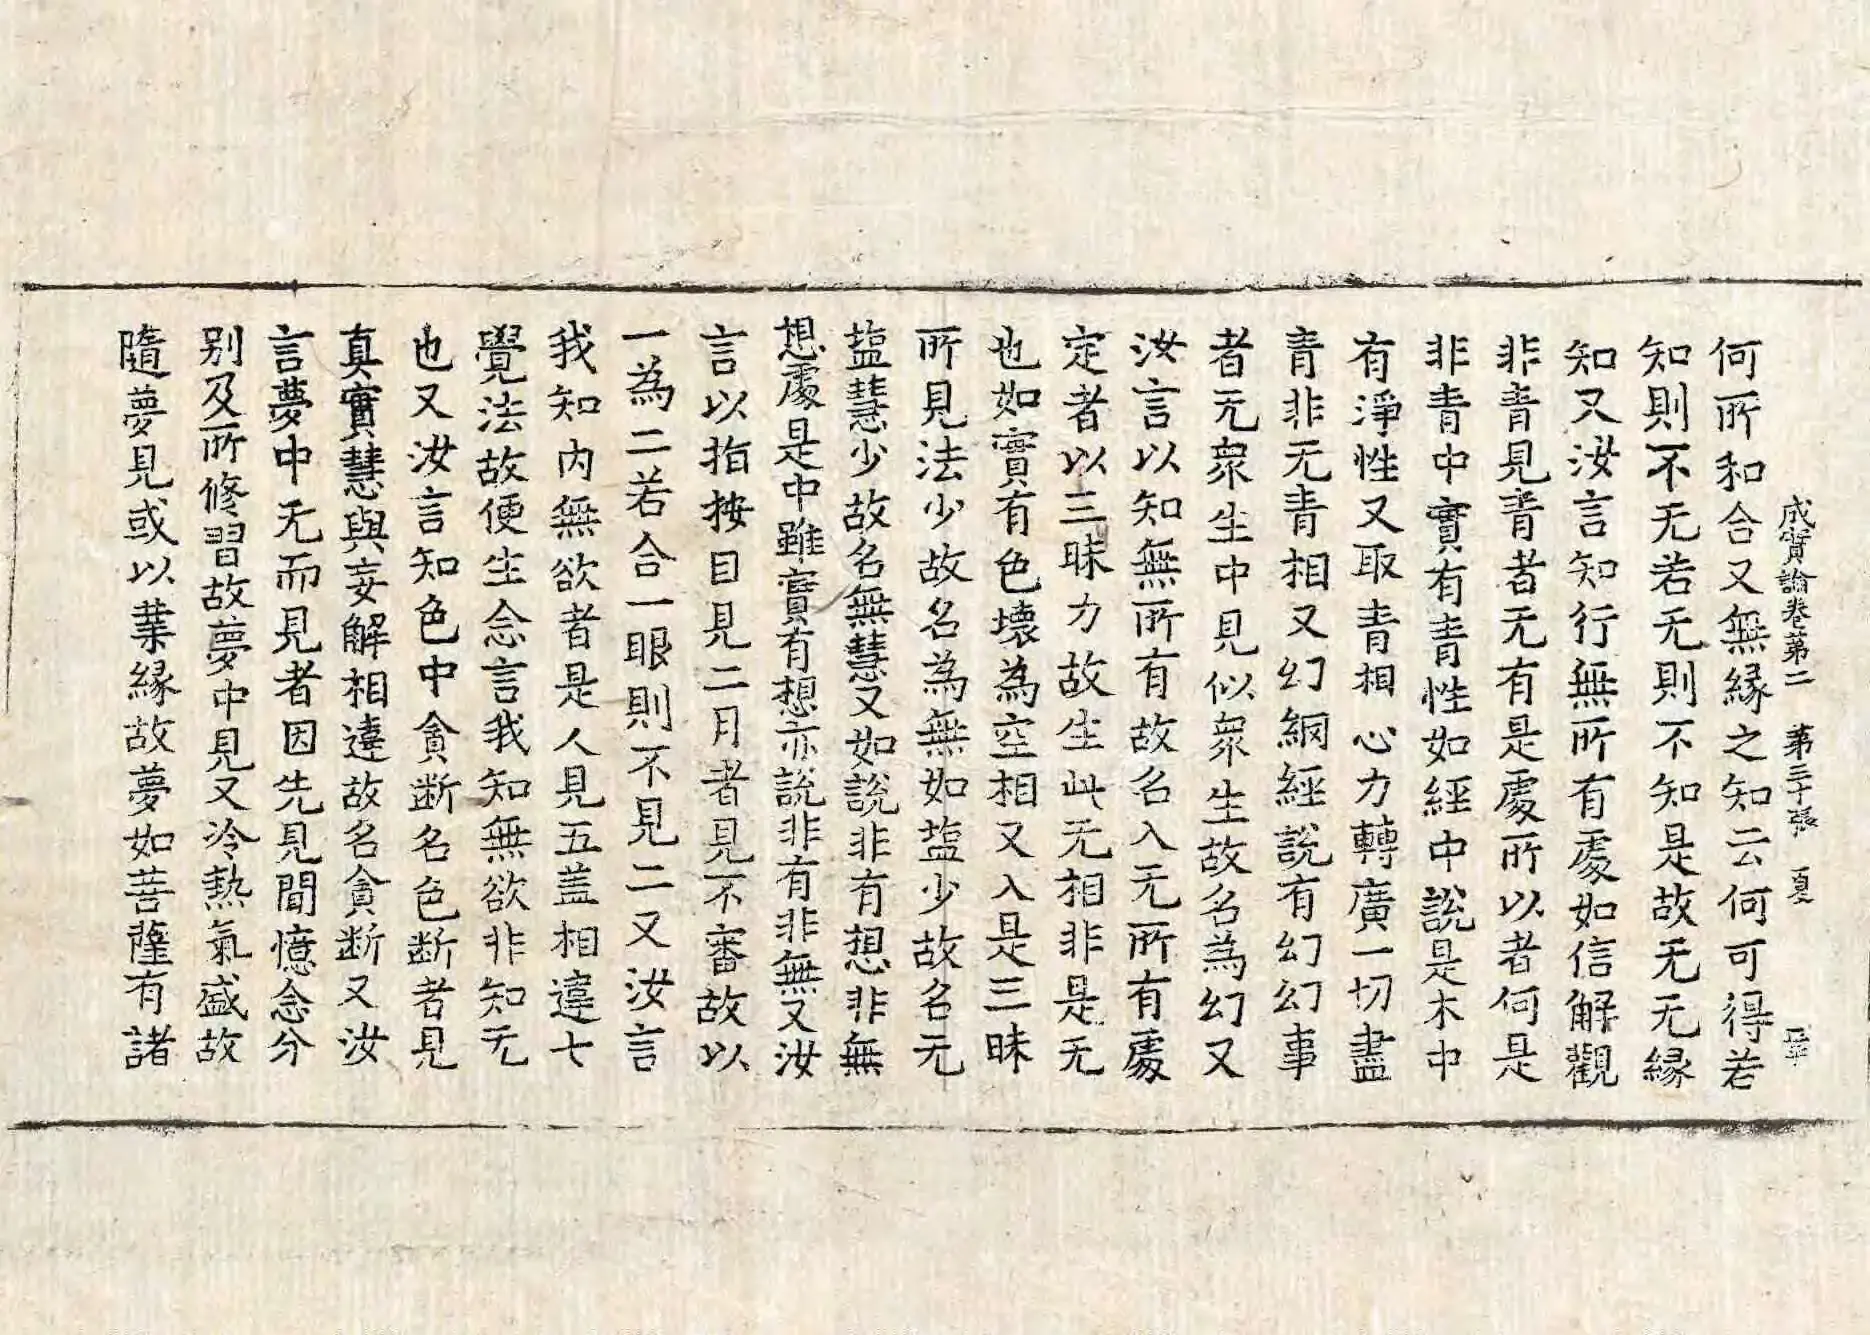 成實論卷第二 第三十張 夏
何所和合又無緣之知云何可得若
知則不无若无則不知是故无无緣
知又汝言知行無所有處如信解觀
非青見青者无有是處所以者何是
非青中實有青性如經中說是木中
有淨性又取青相心力轉廣一切盡
青非无青相又幻網經說有幻幻事
者无衆生中見似衆生故名為幻又
汝言以知無所有故名入无所有處
定者以三昧力故生此无相非是无
也如實有色壞為空相又入是三昧
所見法少故名為無如塩少故名无
塩慧少故名無慧又如說非有想非無
想處是中雖實有想亦說非有非無又汝
言以指按目見二月者見不審故以
一為二若合一眼則不見二又汝言
我知內無欲者是人見五盖相違七
覺法故便生念言我知無欲非知无
也又汝言知色中貪断名色断者見
真實慧與妄解相違故名貪断又汝
言夢中无而見者因先見聞憶念分
別及所修習故夢中見又冷熱氣盛故
隨夢見或以業緣故夢如菩薩有諸